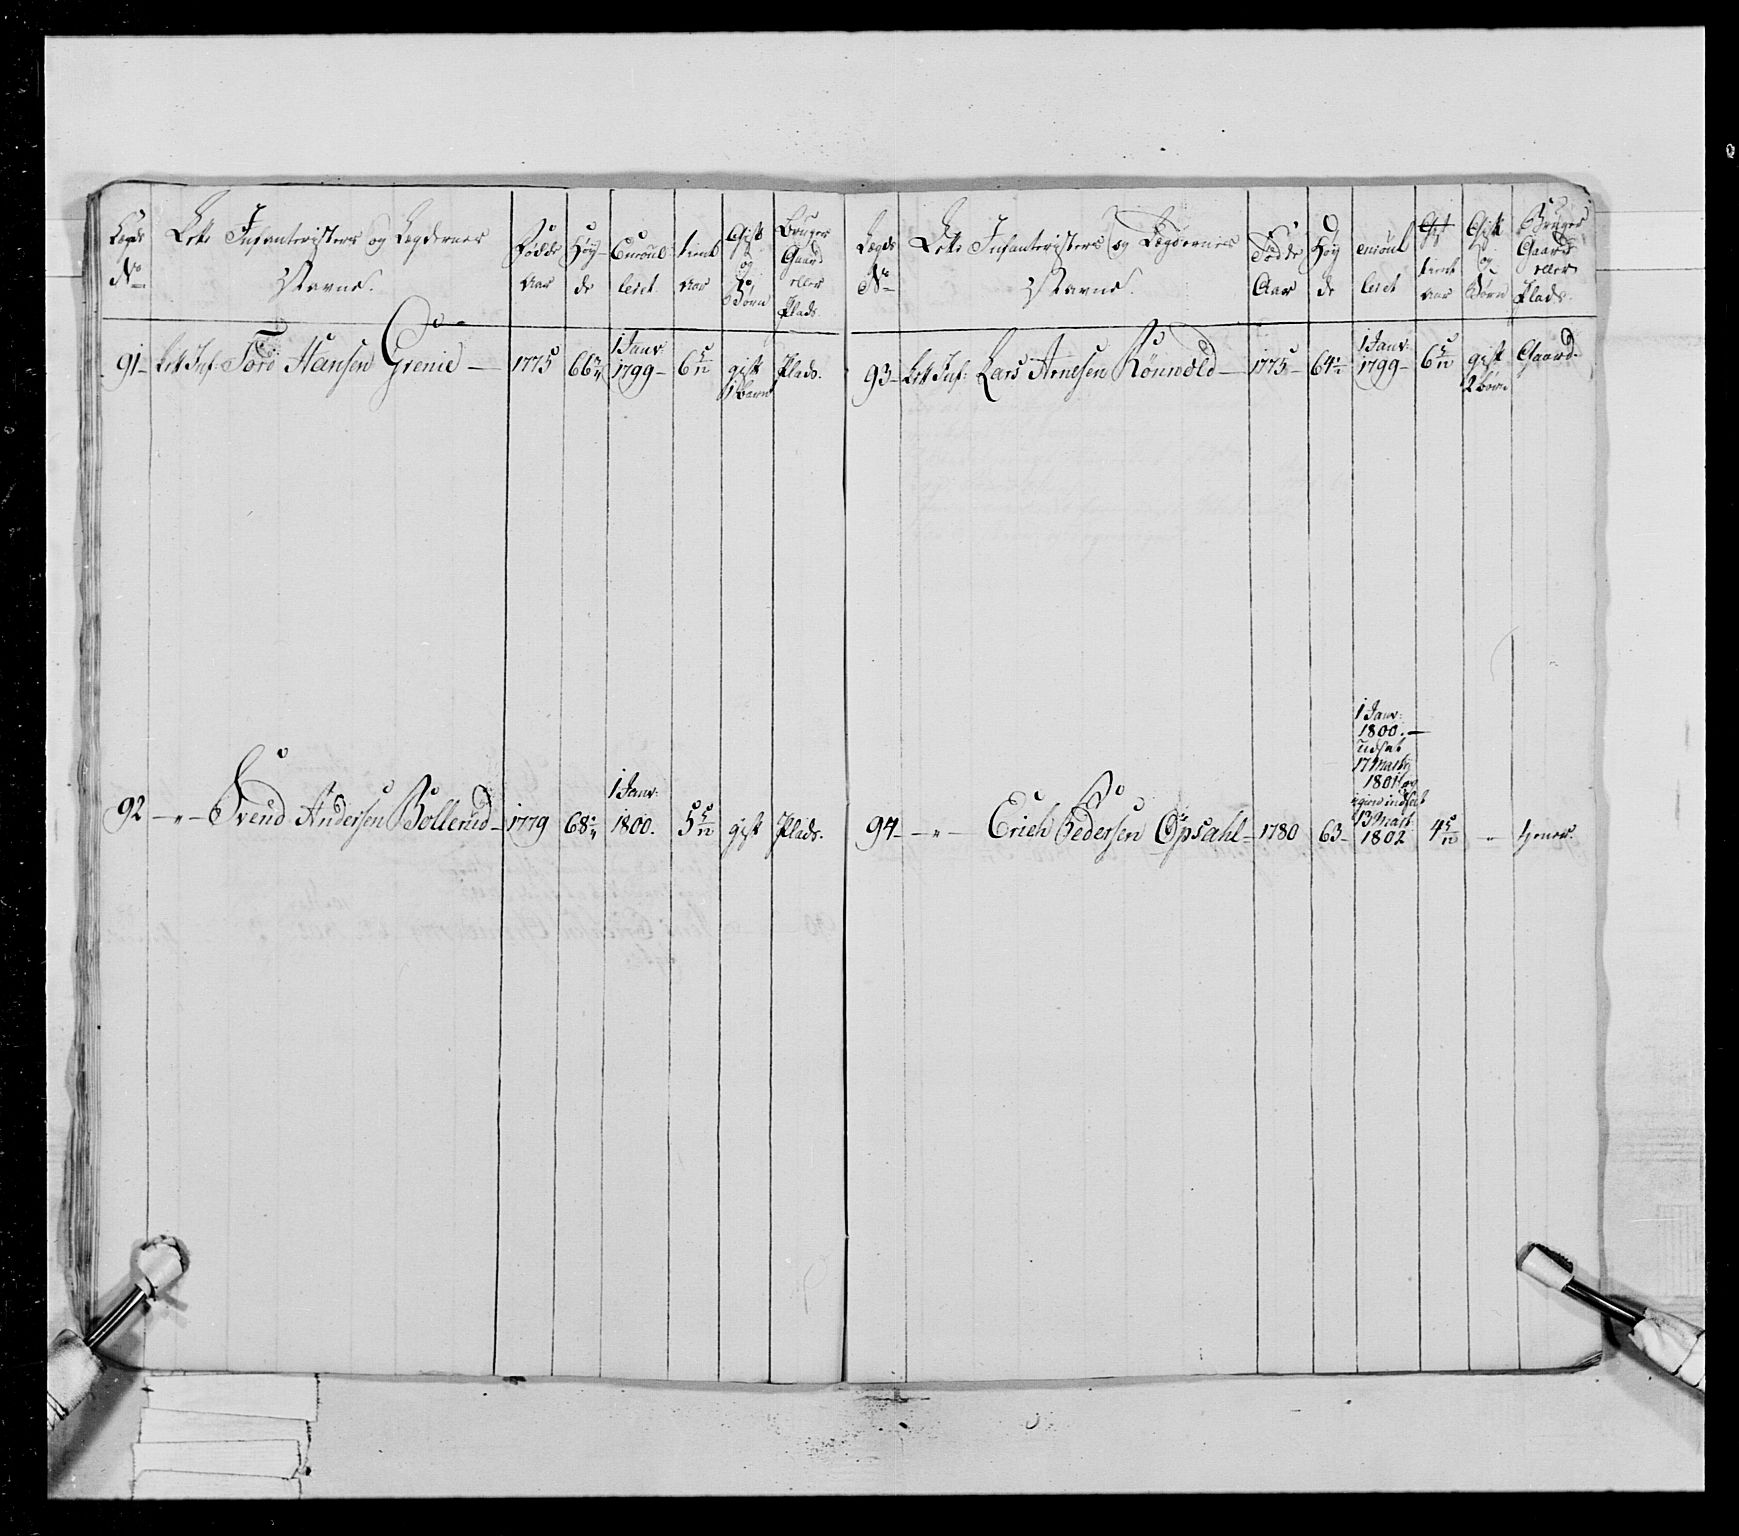 Lægds No
Lette Infanteristers og Legdernes Navne.
Fødde Aar
Høy de
Enroul leret
tient aar
Gift og Børn
Bruger Gaard eller Plads
91 - Lett Inf: Tore Hansen Grenie - 1775 66 1 Janv: 1799 - 6 5/12 gift 1 barn Plads.
92 - " - Svend Andersen Bollerud - 1779 68 1 Janv: 1800. 5 5/12 gift Plads.
Lægds No
Lette Infanteristers og Lægdernes Navne.
Fødde Aar
Høy de
enroul leret
tient aar
Gift og Børn
Bruger Gaard eller Plads.
93 - Lett Inf: Lars Arnesen Rönnold - 1775 64 1 Janv: 1799 - 6 5/12 gift 2 börn Gaard.
94 - " - Erich Pedersen Opsahl - 1780 63 - 1 Janv: 1800. - udsat 17 Martz 1801 og igien indsat 13 Mart 1802 4 5/12 " tiener.